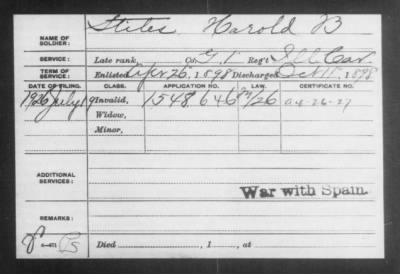 NAME OF SOLDIER: Stites Harold B
SERVICE: Late rank, Co. G, 1 Reg't Ill Cav.
TERM OF SERVICE: Enlisted Apr 26, 1898 Discharged Oct 11, 1898
DATE OF FILING. CLASS. APPLICATION NO. LAW. CERTIFICATE NO.
1926 July 19 Invalid, 1548646 26
Widow,
Minor,
ADDITIONAL SERVICES:
War with Spain.
REMARKS:
Died , 1 , at